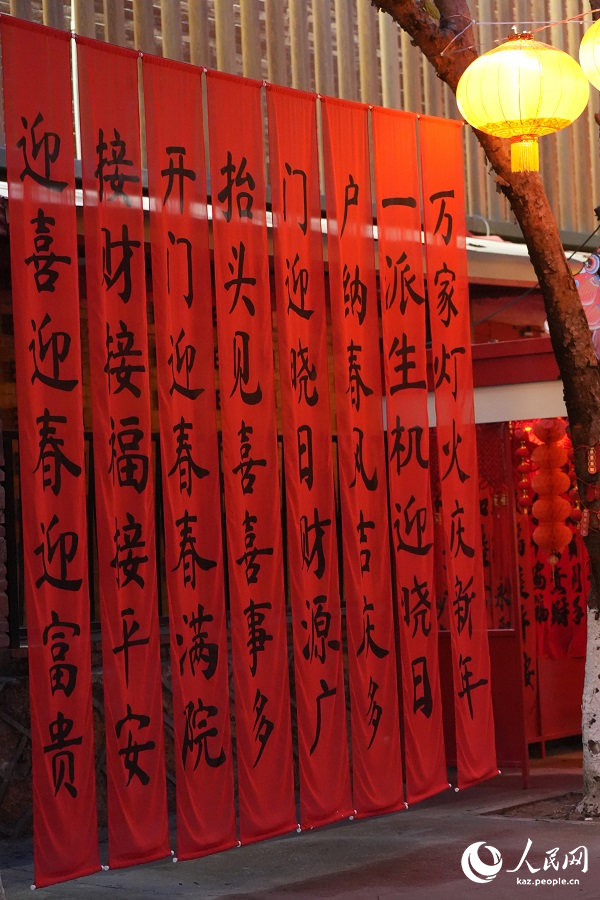 迎喜迎春迎富贵
接财接福接平安
开门迎春春满院
抬头见喜喜事多
门迎晓日财源广
户纳春风吉庆多
一派生机迎晓日
万家灯火庆新年
人民网
kaz.people.cn